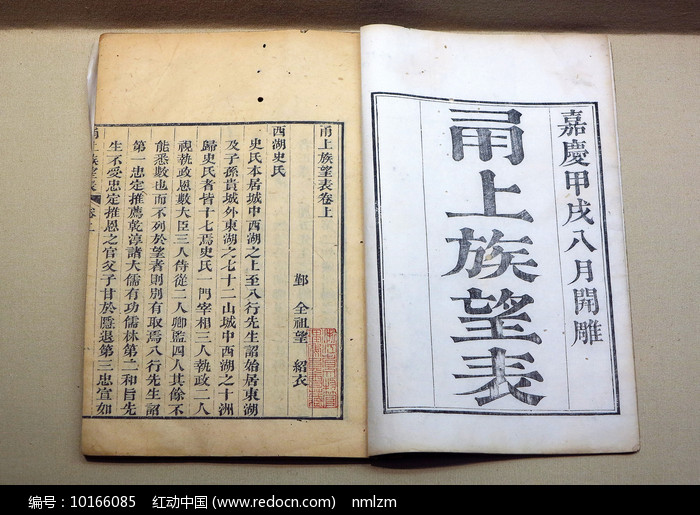 嘉慶甲戌八月開雕
甬上族望表
甬上族望表卷上
鄞 全祖望 紹衣
西湖史氏
史氏本居城中西湖之上至八行先生詔始居東湖
及子孫貴城外東湖之七十二山城中西湖之十洲
歸史氏者皆十七焉史氏一門宰相三人執政二人
視執政恩數大臣三人侍從二人卿監四人其餘不
能悉數也而不列於望者則別有取焉八行先生詔
第一忠定推薦乾淳諸大儒有功儒林第二和旨先
生不受忠定推恩之官父子甘於隱退第三忠宣如
甬上族望表 卷上
编号:10166085 红动中国 (www.redocn.com) nmlzm